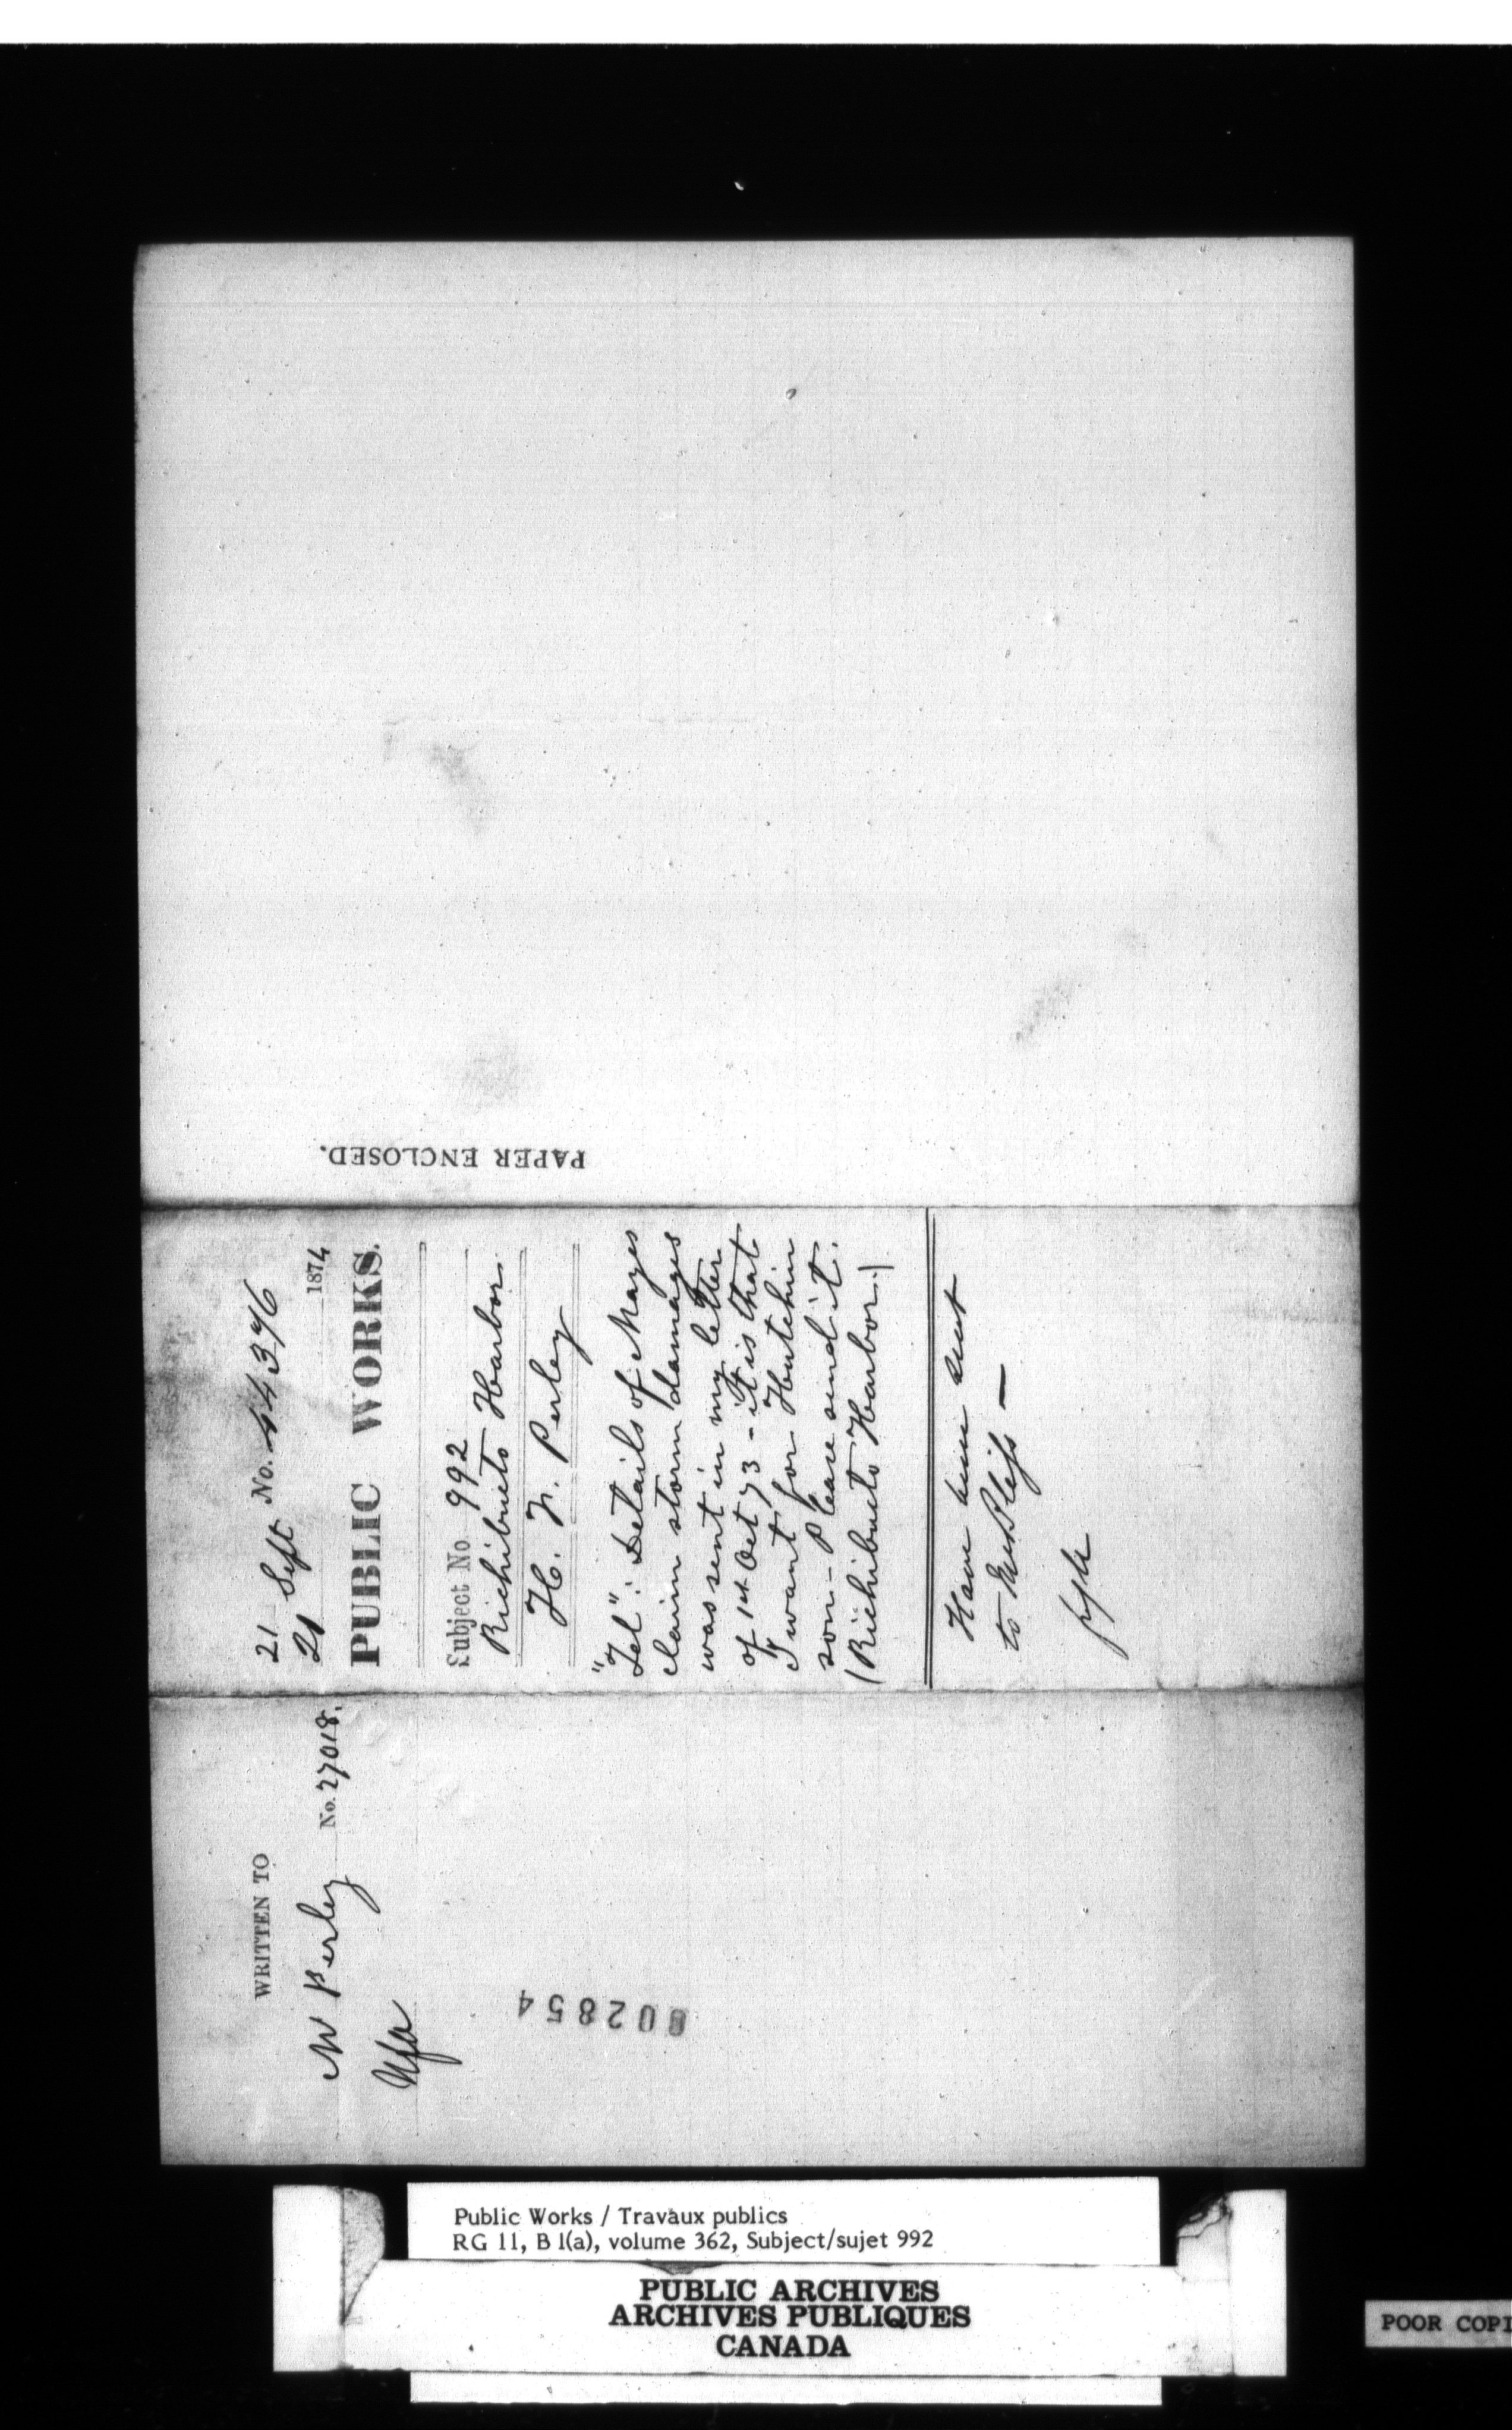 PAPER ENCLOSED.
21 Sept No. 44376
21 1874
PUBLIC WORKS.
Subject No 992
Richibucto Harbor.
H. F. Perley
"Tel": Details of Mayes
claim storm damages
was sent in my letter
of 1st Oct 73 - it is that
I want for Hutchin
son - Please send it.
(Richibucto Harbor.)
Have been sent
to
WRITTEN TO
M Perley No. 27018.
002854
Public Works / Travaux publics
RG 11, B 1(a), volume 362, Subject/sujet 992
PUBLIC ARCHIVES
ARCHIVES PUBLIQUES
CANADA
POOR COPI